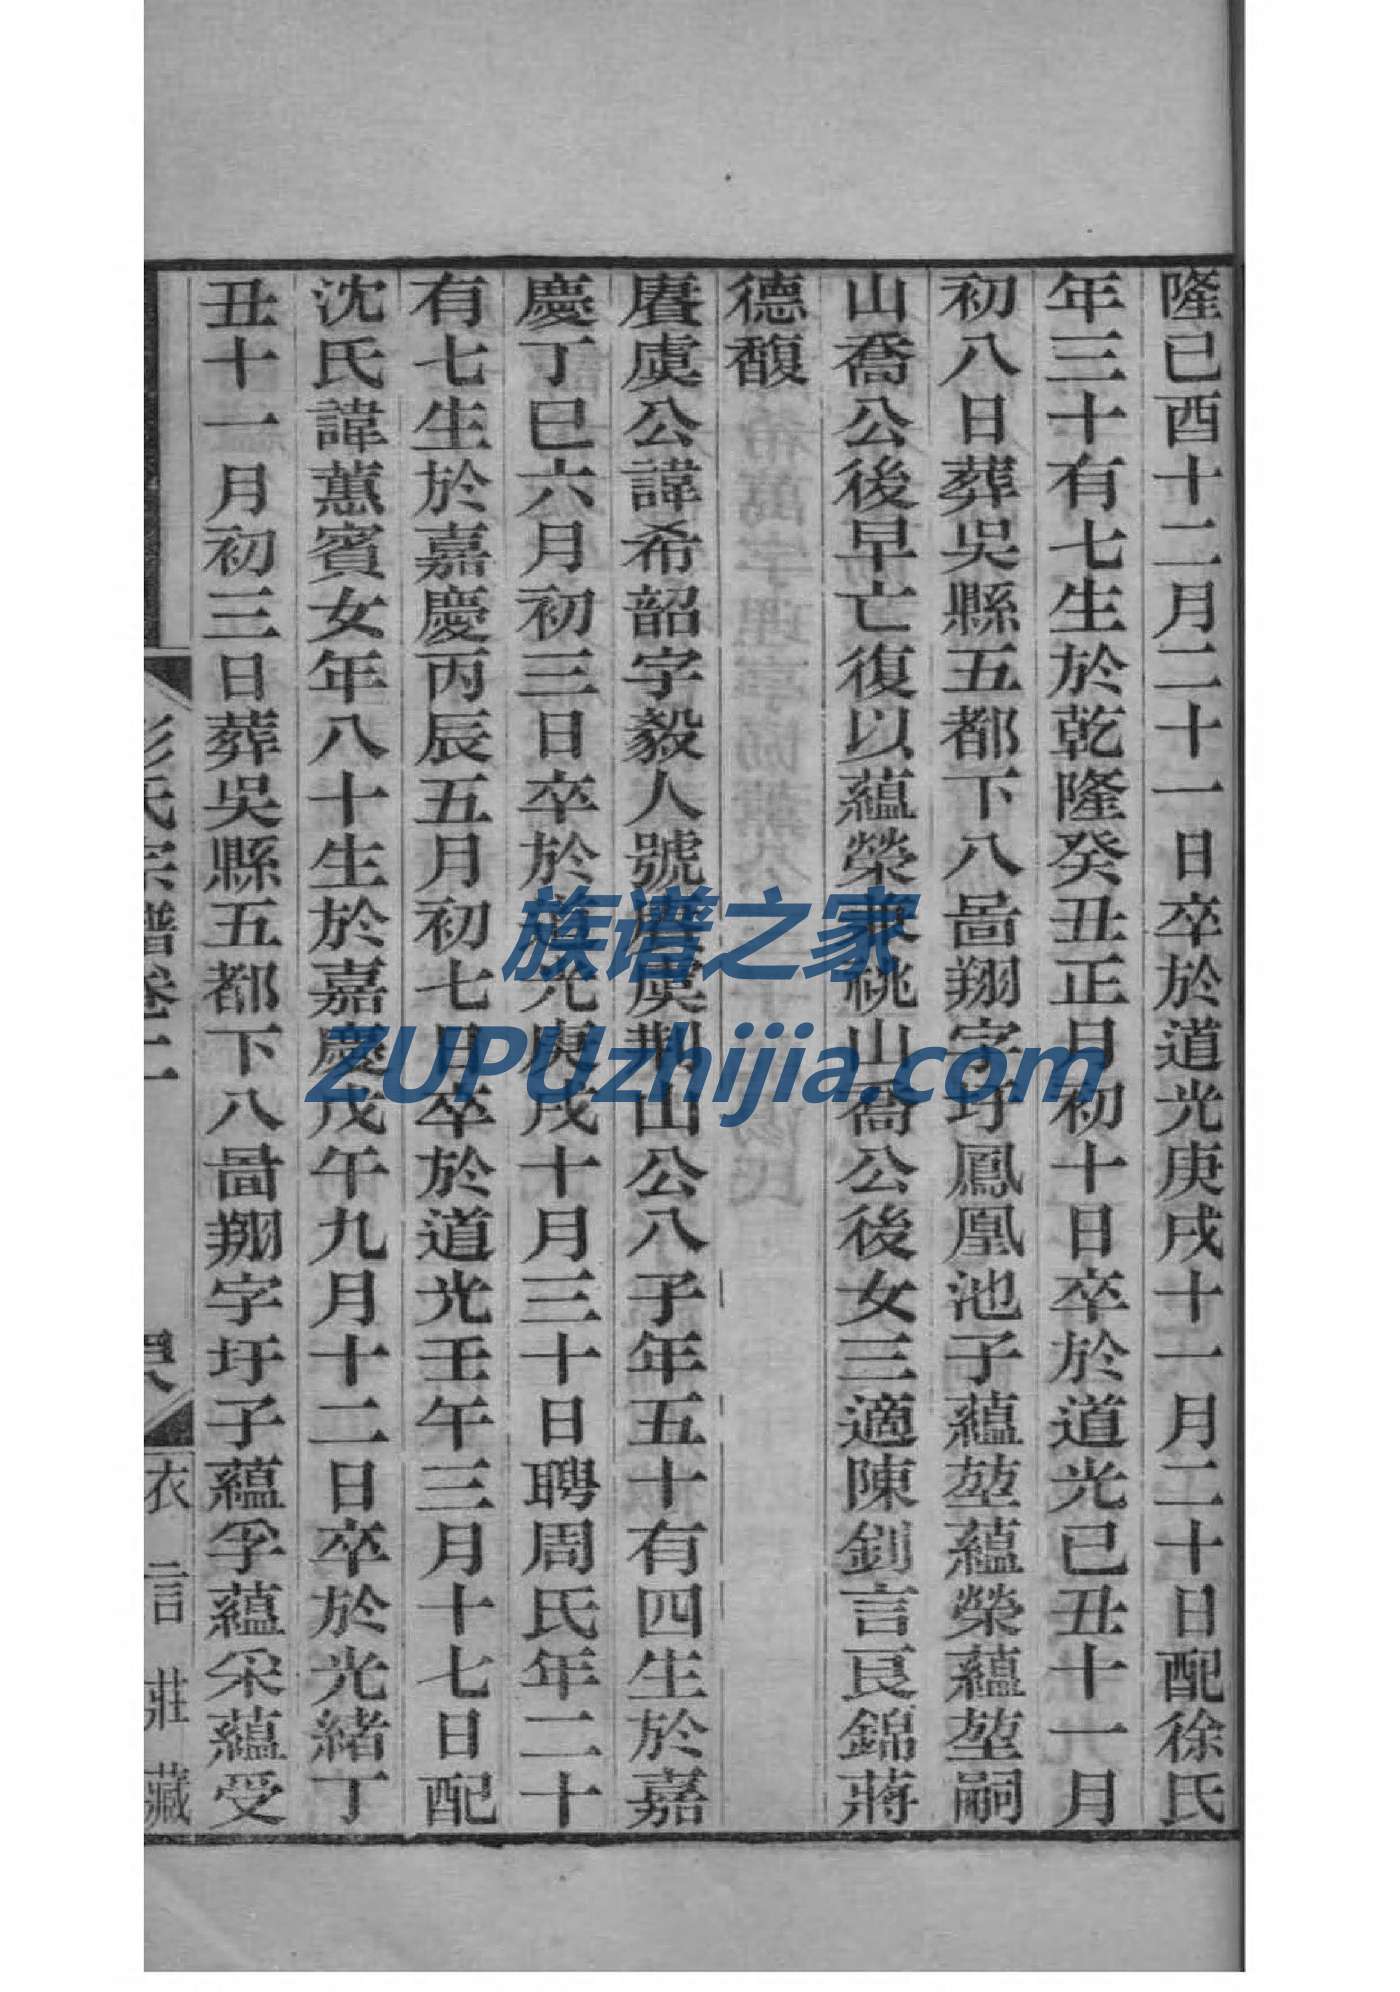 隆己酉十二月二十一日卒於道光庚戌十一月二十日配徐氏
年三十有七生於乾隆癸丑正月初十日卒於道光己丑十一月
初八日葬吳縣五都下八啚翔字圩鳳凰池子蘊堃蘊榮蘊堃嗣
山喬公後早亡復以蘊榮兼祧山喬公後女三適陳釗言艮錦蔣
德馥
賡虞公諱希韶字毅人號賡虞荆山公八子年五十有四生於嘉
慶丁巳六月初三日卒於道光庚戌十月三十日聘周氏年二十
有七生於嘉慶丙辰五月初七日卒於道光壬午三月十七日配
沈氏諱蕙賓女年八十生於嘉慶戊午九月十二日卒於光緒丁
丑十一月初三日葬吳縣五都下八啚翔字圩子蘊孚蘊采蘊受
彭氏宗譜卷二
衣言莊藏
族谱之家
ZUPUzhijia.com